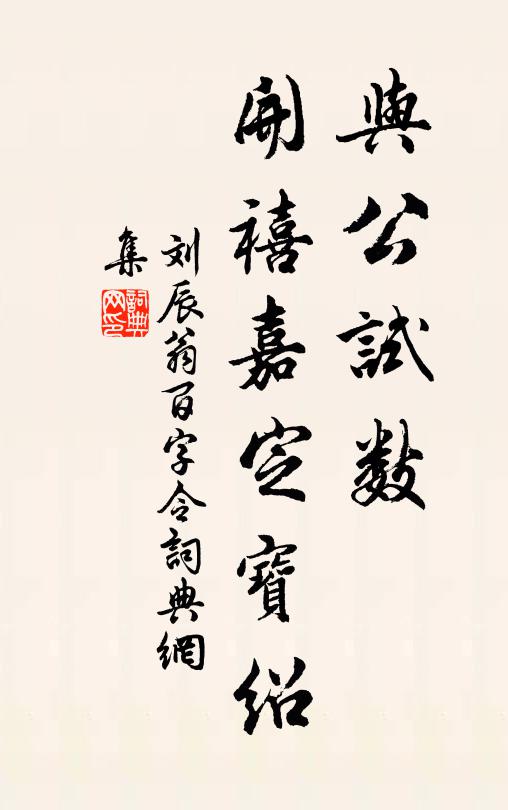 與公試數
開禧嘉定寶紹
刘辰翁百字令詞典網
集
詞典网印